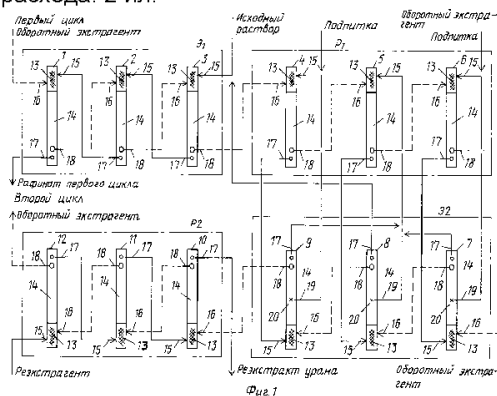 расхода. 2 ил.
Первый цикл
Оборотный экстрагент
Э1
Исходный
раствор
Подпитка
Оборотный экстра-
гент
Подпитка
P1
1 2 3 4 5 6
13 15 13 15 13 15 13 15 13 15 13 15
16 16 16 16 16 16
14 14 14 14 14 14
17 18 17 18 17 18 17 18 17 18 17 18
Рафинат первого цикла
Второй цикл
Оборотный экстрагент
P2
Э2
12 11 10 9 8 7
18 17 18 17 18 17 17 18 17 18 17 18
14 14 14 14 14 14
19 19 19
20 20 20
16 16 16 16 16 16
15 13 15 13 15 13 15 13 15 13 15 13
Реэкстрагент
Реэкстракт урана
Оборотный экстра-
гент
Фиг.1